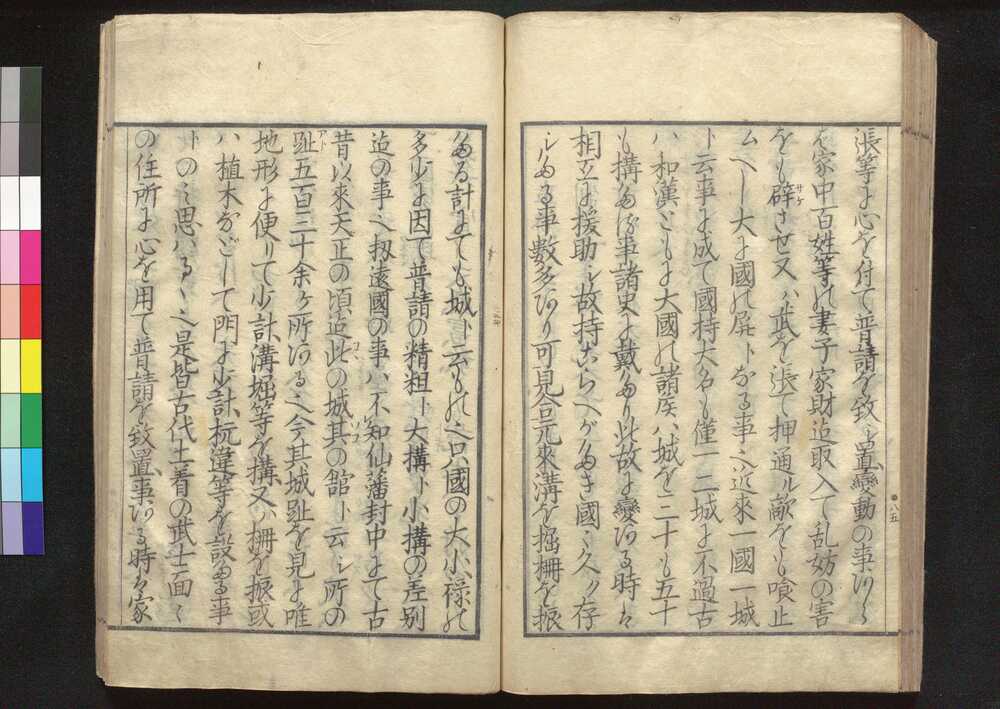 張等よ心を付て普請を致シ置變動の事アらハ
を家中百姓等の妻子家財迄取入て乱妨の害
をも辟サケさせ又ハ武を張て押通ル敵をも喰止
ムへし大よ國の屏トなる事也近來一國一城
ト云事よ成て國持大名も僅一二城よ不過古
ハ和漢ともよ大國の諸侯ハ城を二三十も五十
も構たる事諸史よ戴たり此故よ變ある時は
相互よ援助シ故持こらへがたき國〻久ク存
シたる事數多あり可見合元來溝を掘柵を振
たる計よても城ト云もの也只國の大小祿の
多少よ因て普請の精粗ト大搆ト小搆の差別
迄の事也扨遠國の事ハ不知仙藩封中よて古
昔以來天正の頃迄此コヽの城其ソコの舘ト云シ所の
趾アト五百三十余ヶ所アる也今其城趾を見よ唯
地形よ便りて少計溝堀等を搆又ハ柵を振或
ハ植木などして門よ少計杭違等を設たる事
トのミ思ハるゝ也是皆古代土着の武士面〻
の住所よ心を用て普請を致置事アる時は家
八五